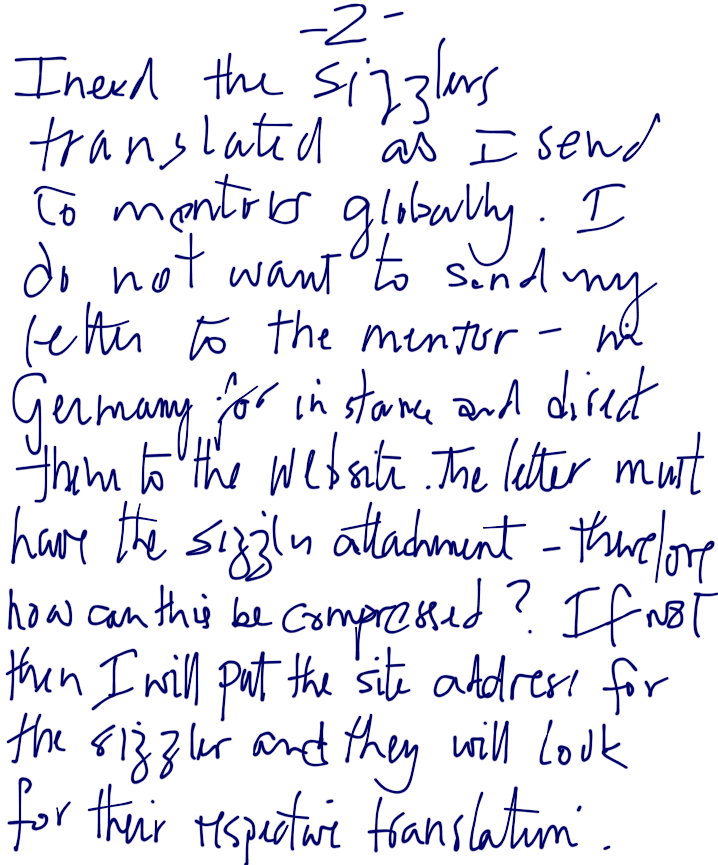 -2-
I need the sizzlers
translated as I send
to mentors globally. I
do not want to send my
letter to the mentor - in
Germany for instance and direct
them to the website. The letter must
have the sizzler attachment - therefore
how can this be compressed? If not
then I will put the site address for
the sizzler and they will look
for their respective translation.